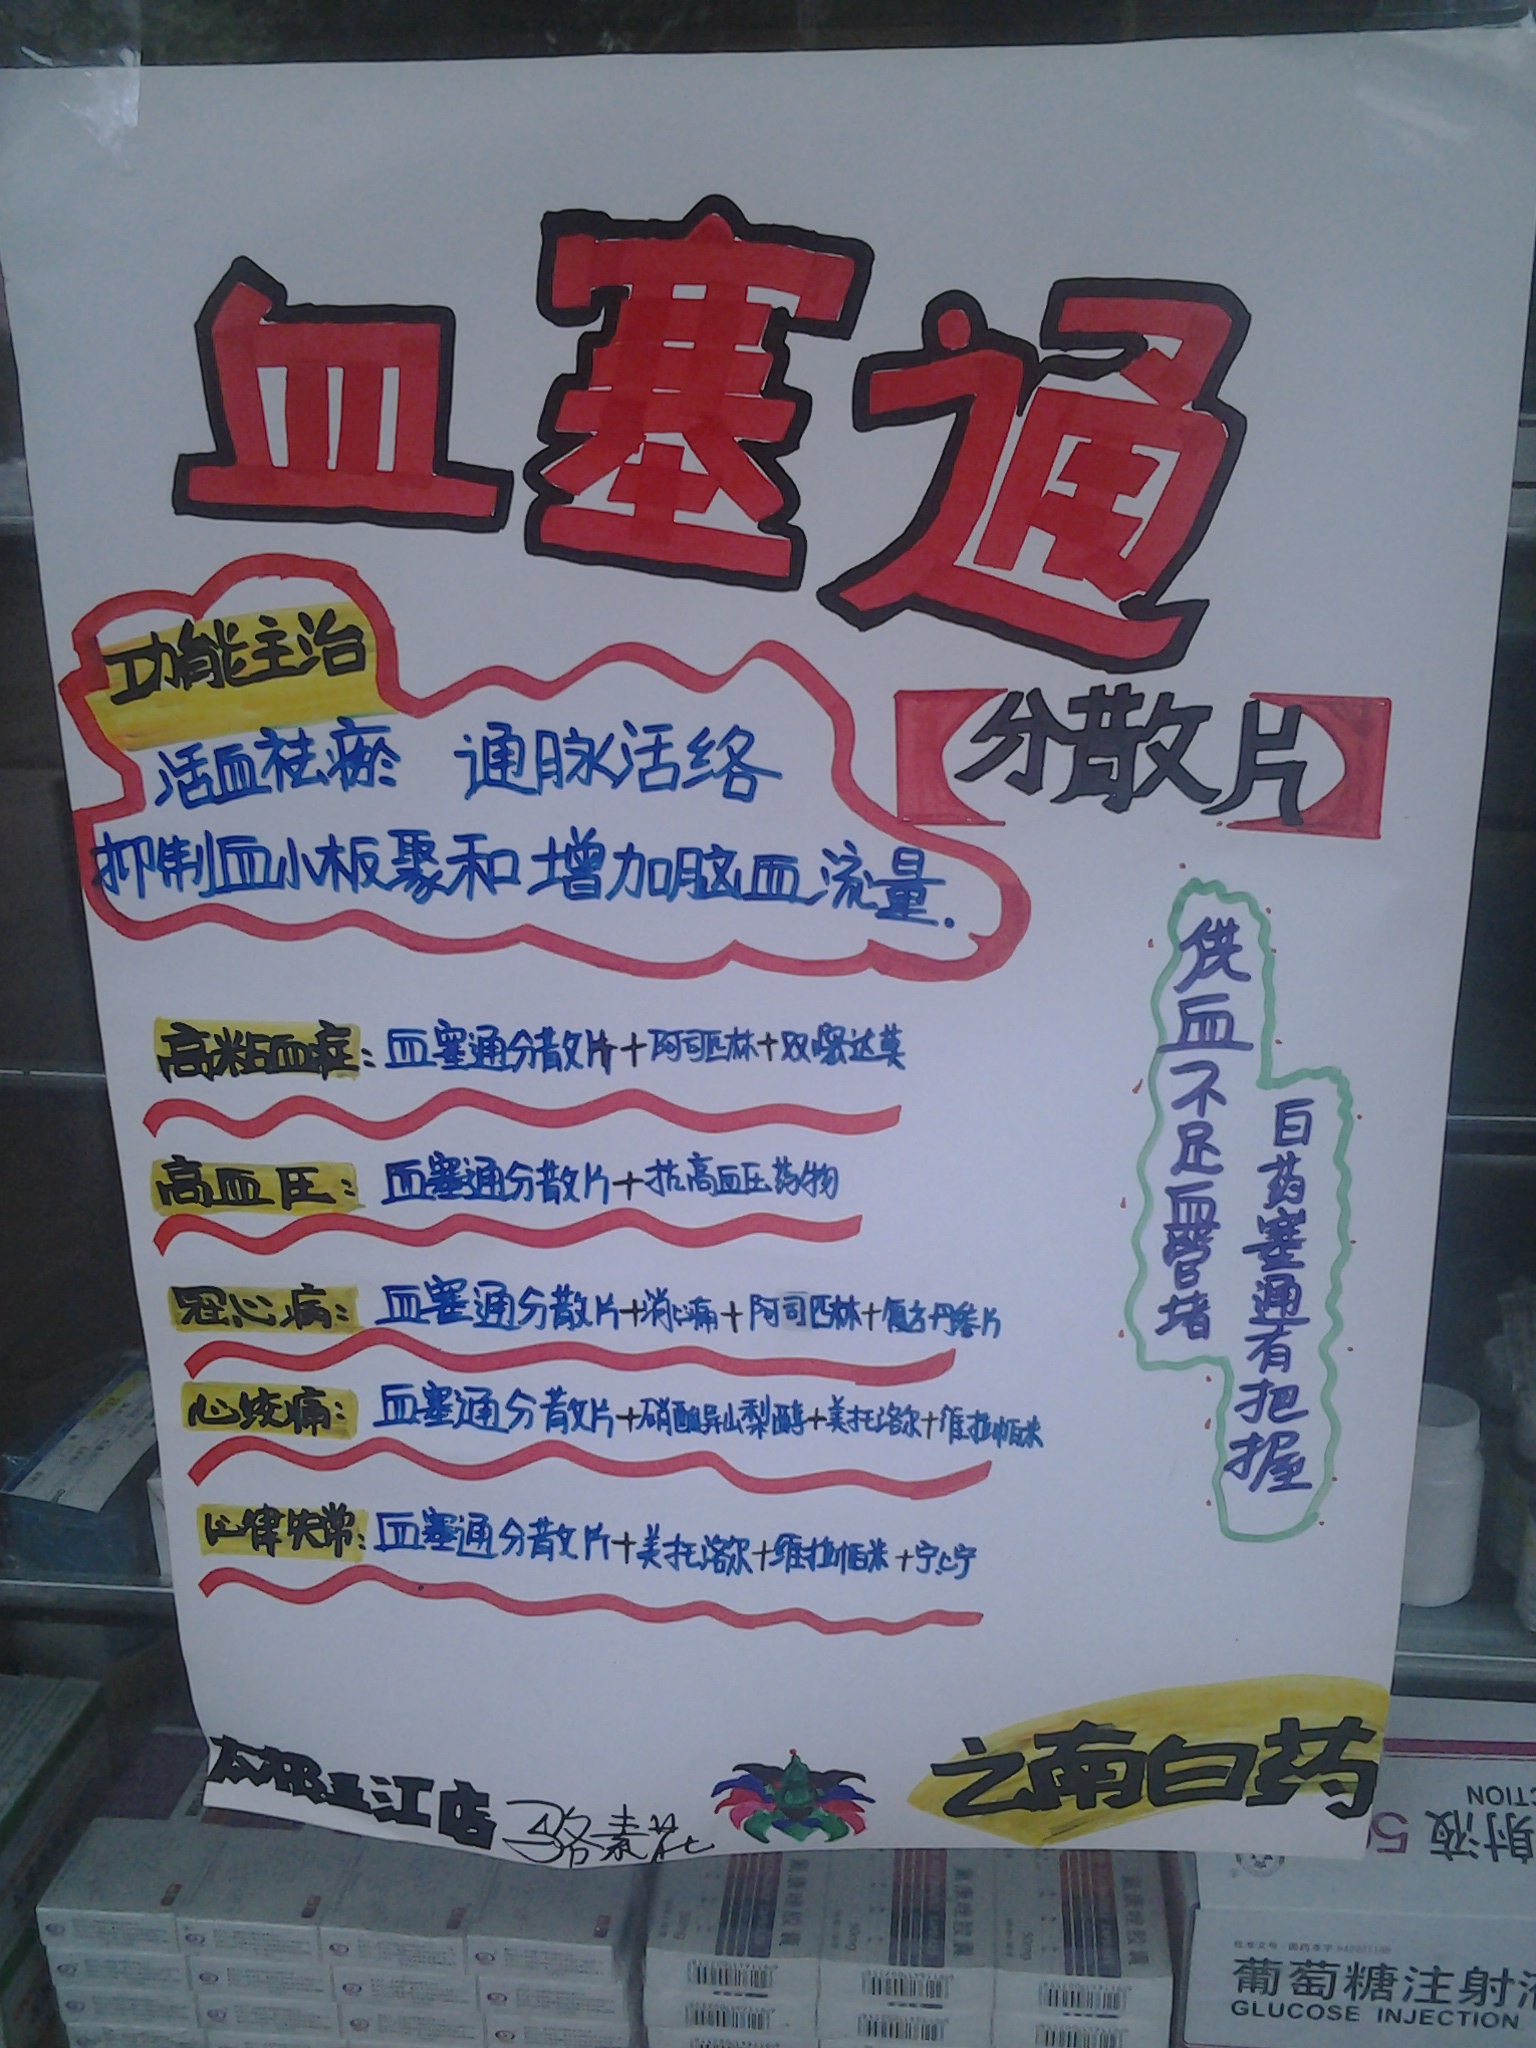 血塞通
【分散片】
功能主治
活血祛瘀 通脉活络
抑制血小板聚和 增加脑血流量.
高粘血症: 血塞通分散片+阿司匹林+双嘧达莫
高血压: 血塞通分散片+抗高血压药物
冠心病: 血塞通分散片+消心痛+阿司匹林+复方丹参片
心绞痛: 血塞通分散片+硝酸异山梨醇+美托洛尔+维拉帕米
心律失常: 血塞通分散片+美托洛尔+维拉帕米+宁心宁
供血不足血管堵
白药塞通有把握
江店
骆素花
云南白药
葡萄糖注射液
GLUCOSE INJECTION
射液